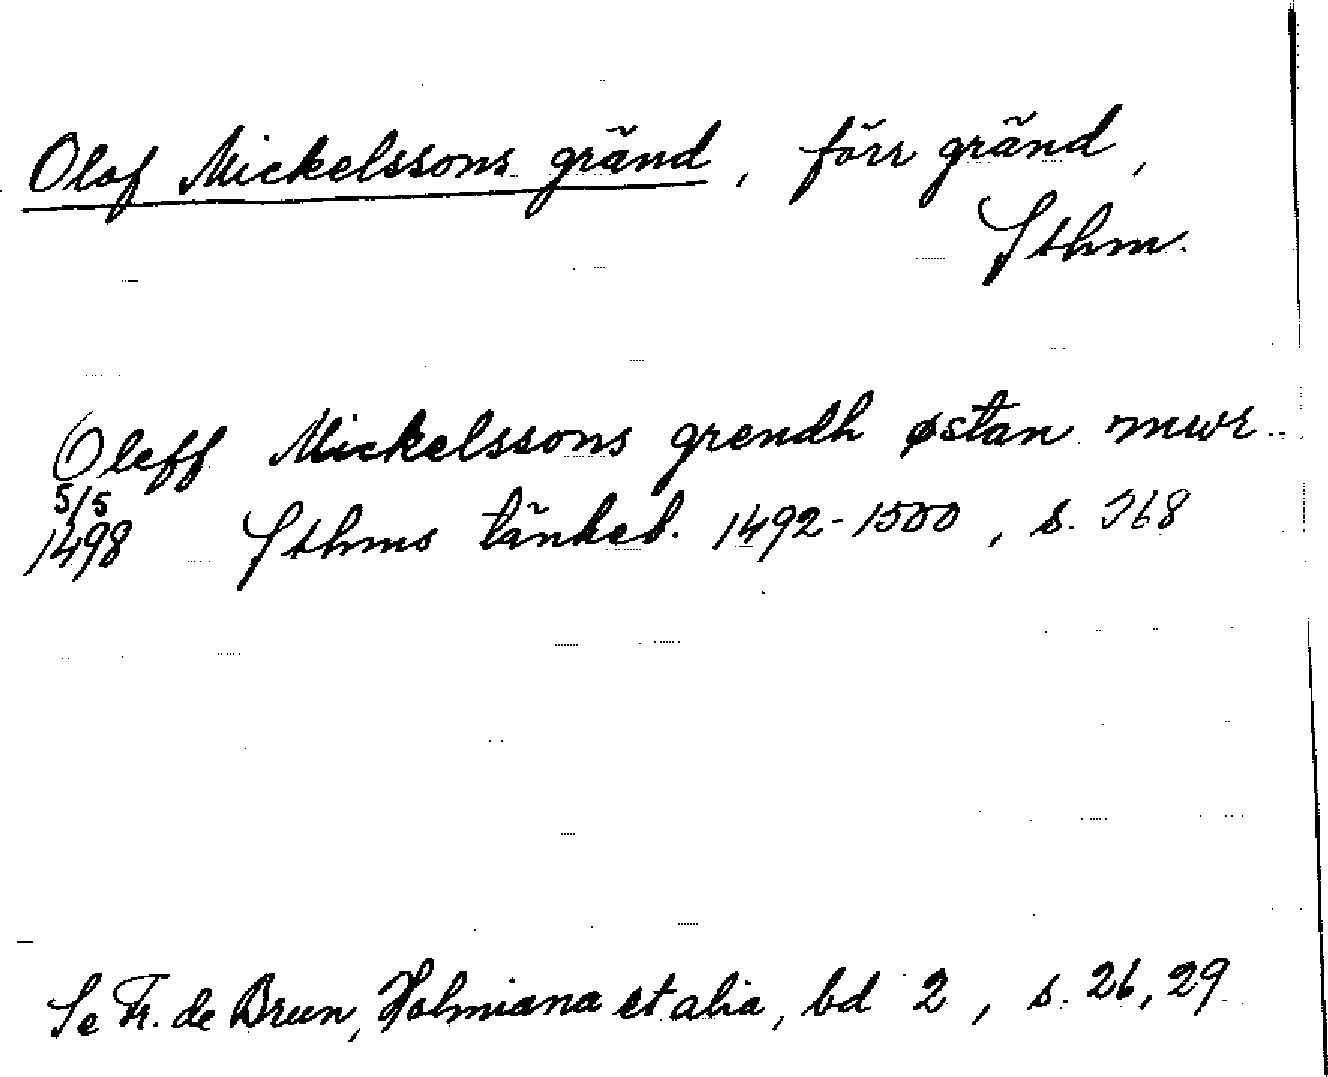 Olof Mickelssons gränd, förr gränd,
Sthm.
Oleff Mickelssons grendh østan mwr
5/5
1498 Sthms tänkeb. 1492-1500, s. 368
Se Fr. de Brun, Holmiana et alia, bd 2, s. 26, 29